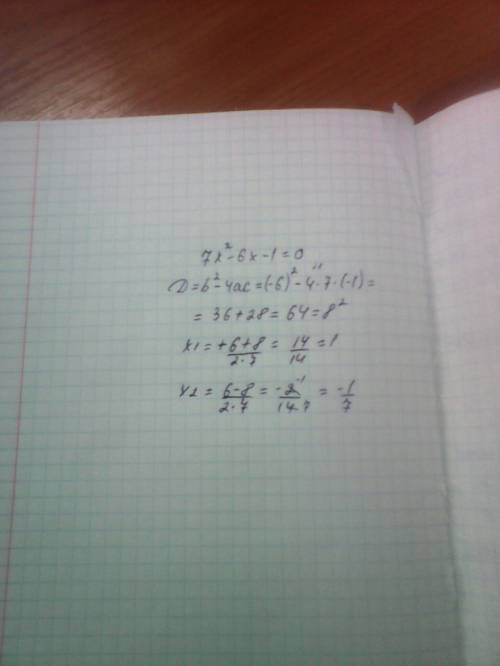 7x² - 6x - 1 = 0
D = b² - 4ac = (-6)² - 4 · 7 · (-1) =
= 36 + 28 = 64 = 8²
x1 = +6+8/2·7 = 14/14 = 1
x2 = 6-8/2·7 = -2⁻¹/14 7 = -1/7